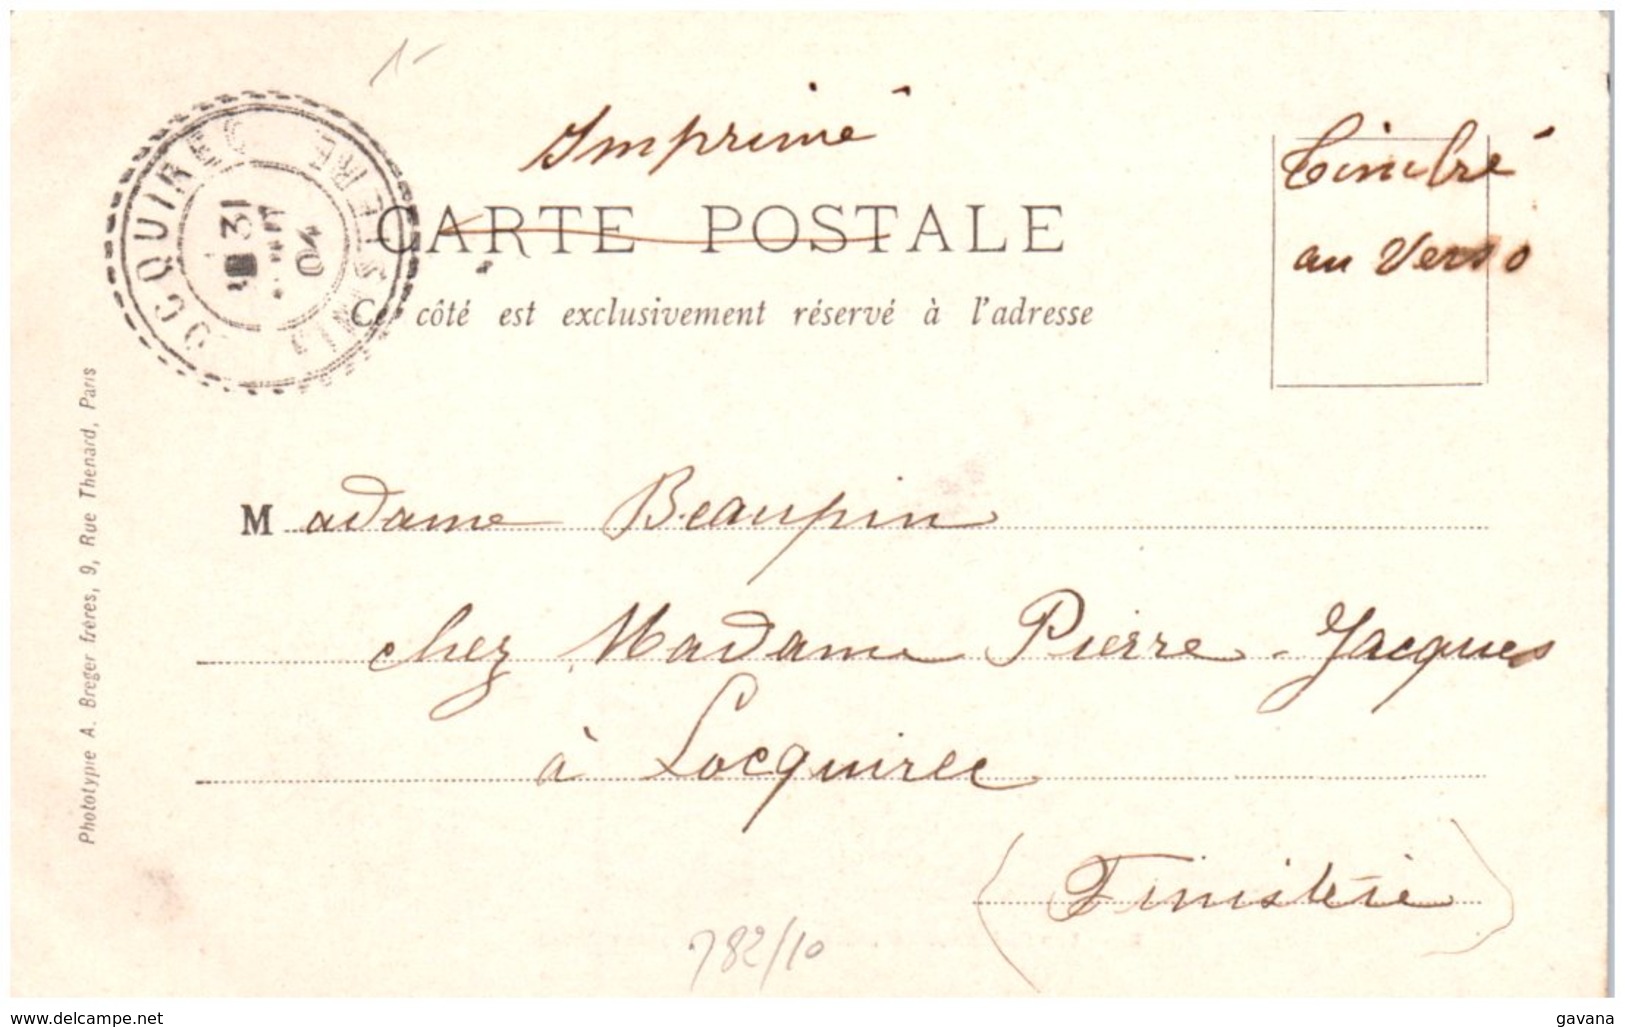 1-
Imprimé
Timbré
au Verso
CARTE POSTALE
Ce côté est exclusivement réservé à l'adresse
LOCQUIREC
FINISTERE
31
04
Phototypie A. Breger frères, 9, Rue Thenard, Paris
Madame Beaupin
chez Madame Pierre-Jacques
à Locquirec
(Finistère)
782/10
www.delcampe.net
gavana